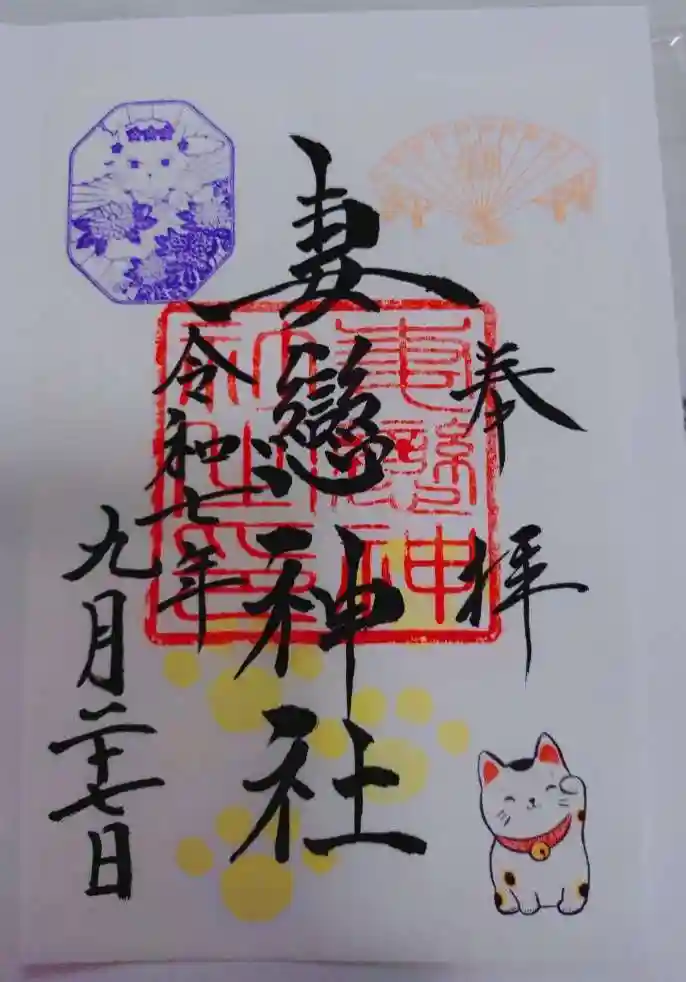 奉拝
妻戀神社
令和七年
九月二十七日
妻戀神
社印